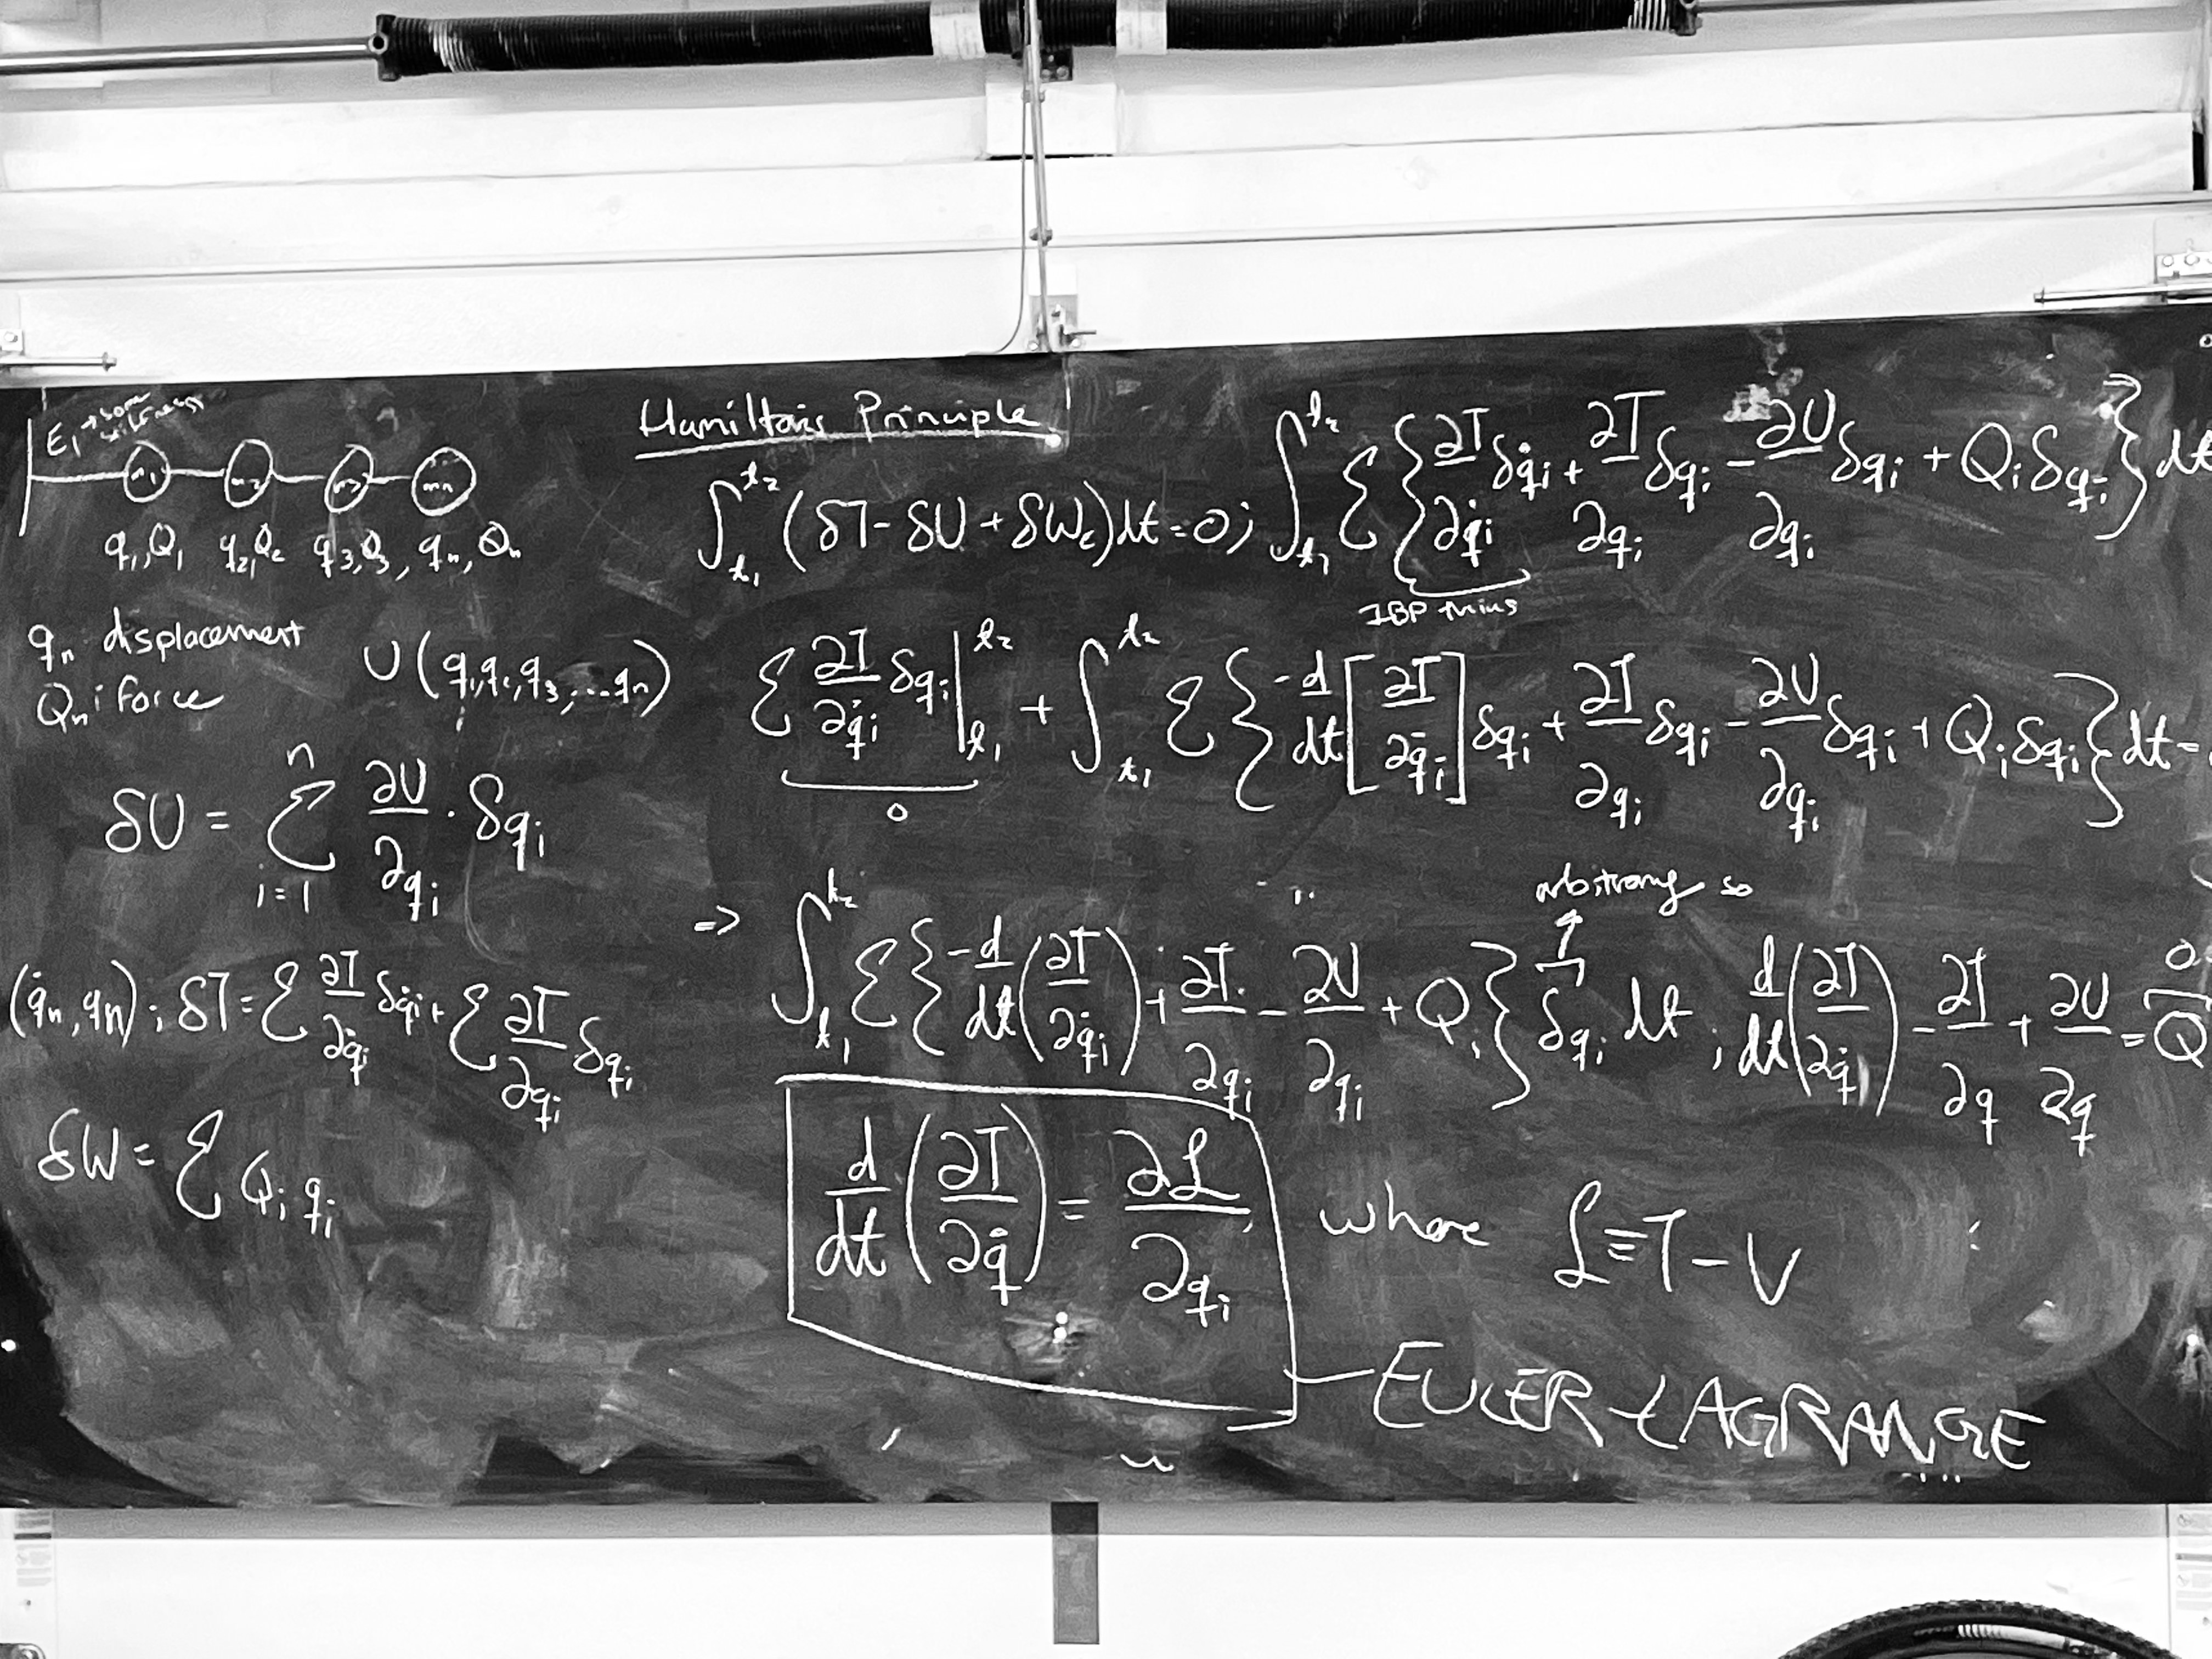 E₁ → some stiffness
m₁ m₂ m₃ mₙ
q₁,Q₁ q₂,Q₂ q₃,Q₃, qₙ, Qₙ
qₙ displacement
Qₙ; force
U(q₁,q₂,q₃,...qₙ)
δU = Σᵢ₌₁ⁿ ∂U/∂qᵢ · δqᵢ
(q̇ₙ, qₙ); δT = Σ ∂T/∂q̇ᵢ δq̇ᵢ + Σ ∂T/∂qᵢ δqᵢ
δW = Σ Qᵢ qᵢ
Hamilton's Principle
∫ₜ₁ᵗ² (δT - δU + δWₑ)dt = 0; ∫ₜ₁ᵗ² Σ { ∂T/∂q̇ᵢ δq̇ᵢ + ∂T/∂qᵢ δqᵢ - ∂U/∂qᵢ δqᵢ + Qᵢ δqᵢ } dt
IBP this
Σ ∂T/∂q̇ᵢ δqᵢ |ₜ₁ᵗ² + ∫ₜ₁ᵗ² Σ { -d/dt [∂T/∂q̇ᵢ] δqᵢ + ∂T/∂qᵢ δqᵢ - ∂U/∂qᵢ δqᵢ + Qᵢ δqᵢ } dt =
0
arbitrary so
=> ∫ₜ₁ᵗ² Σ { -d/dt (∂T/∂q̇ᵢ) + ∂T/∂qᵢ - ∂U/∂qᵢ + Qᵢ } δqᵢ dt ; d/dt (∂T/∂q̇) - ∂T/∂q + ∂U/∂q = Q
0
d/dt (∂T/∂q̇) = ∂ℒ/∂qᵢ where ℒ ≡ T - V
EULER-LAGRANGE